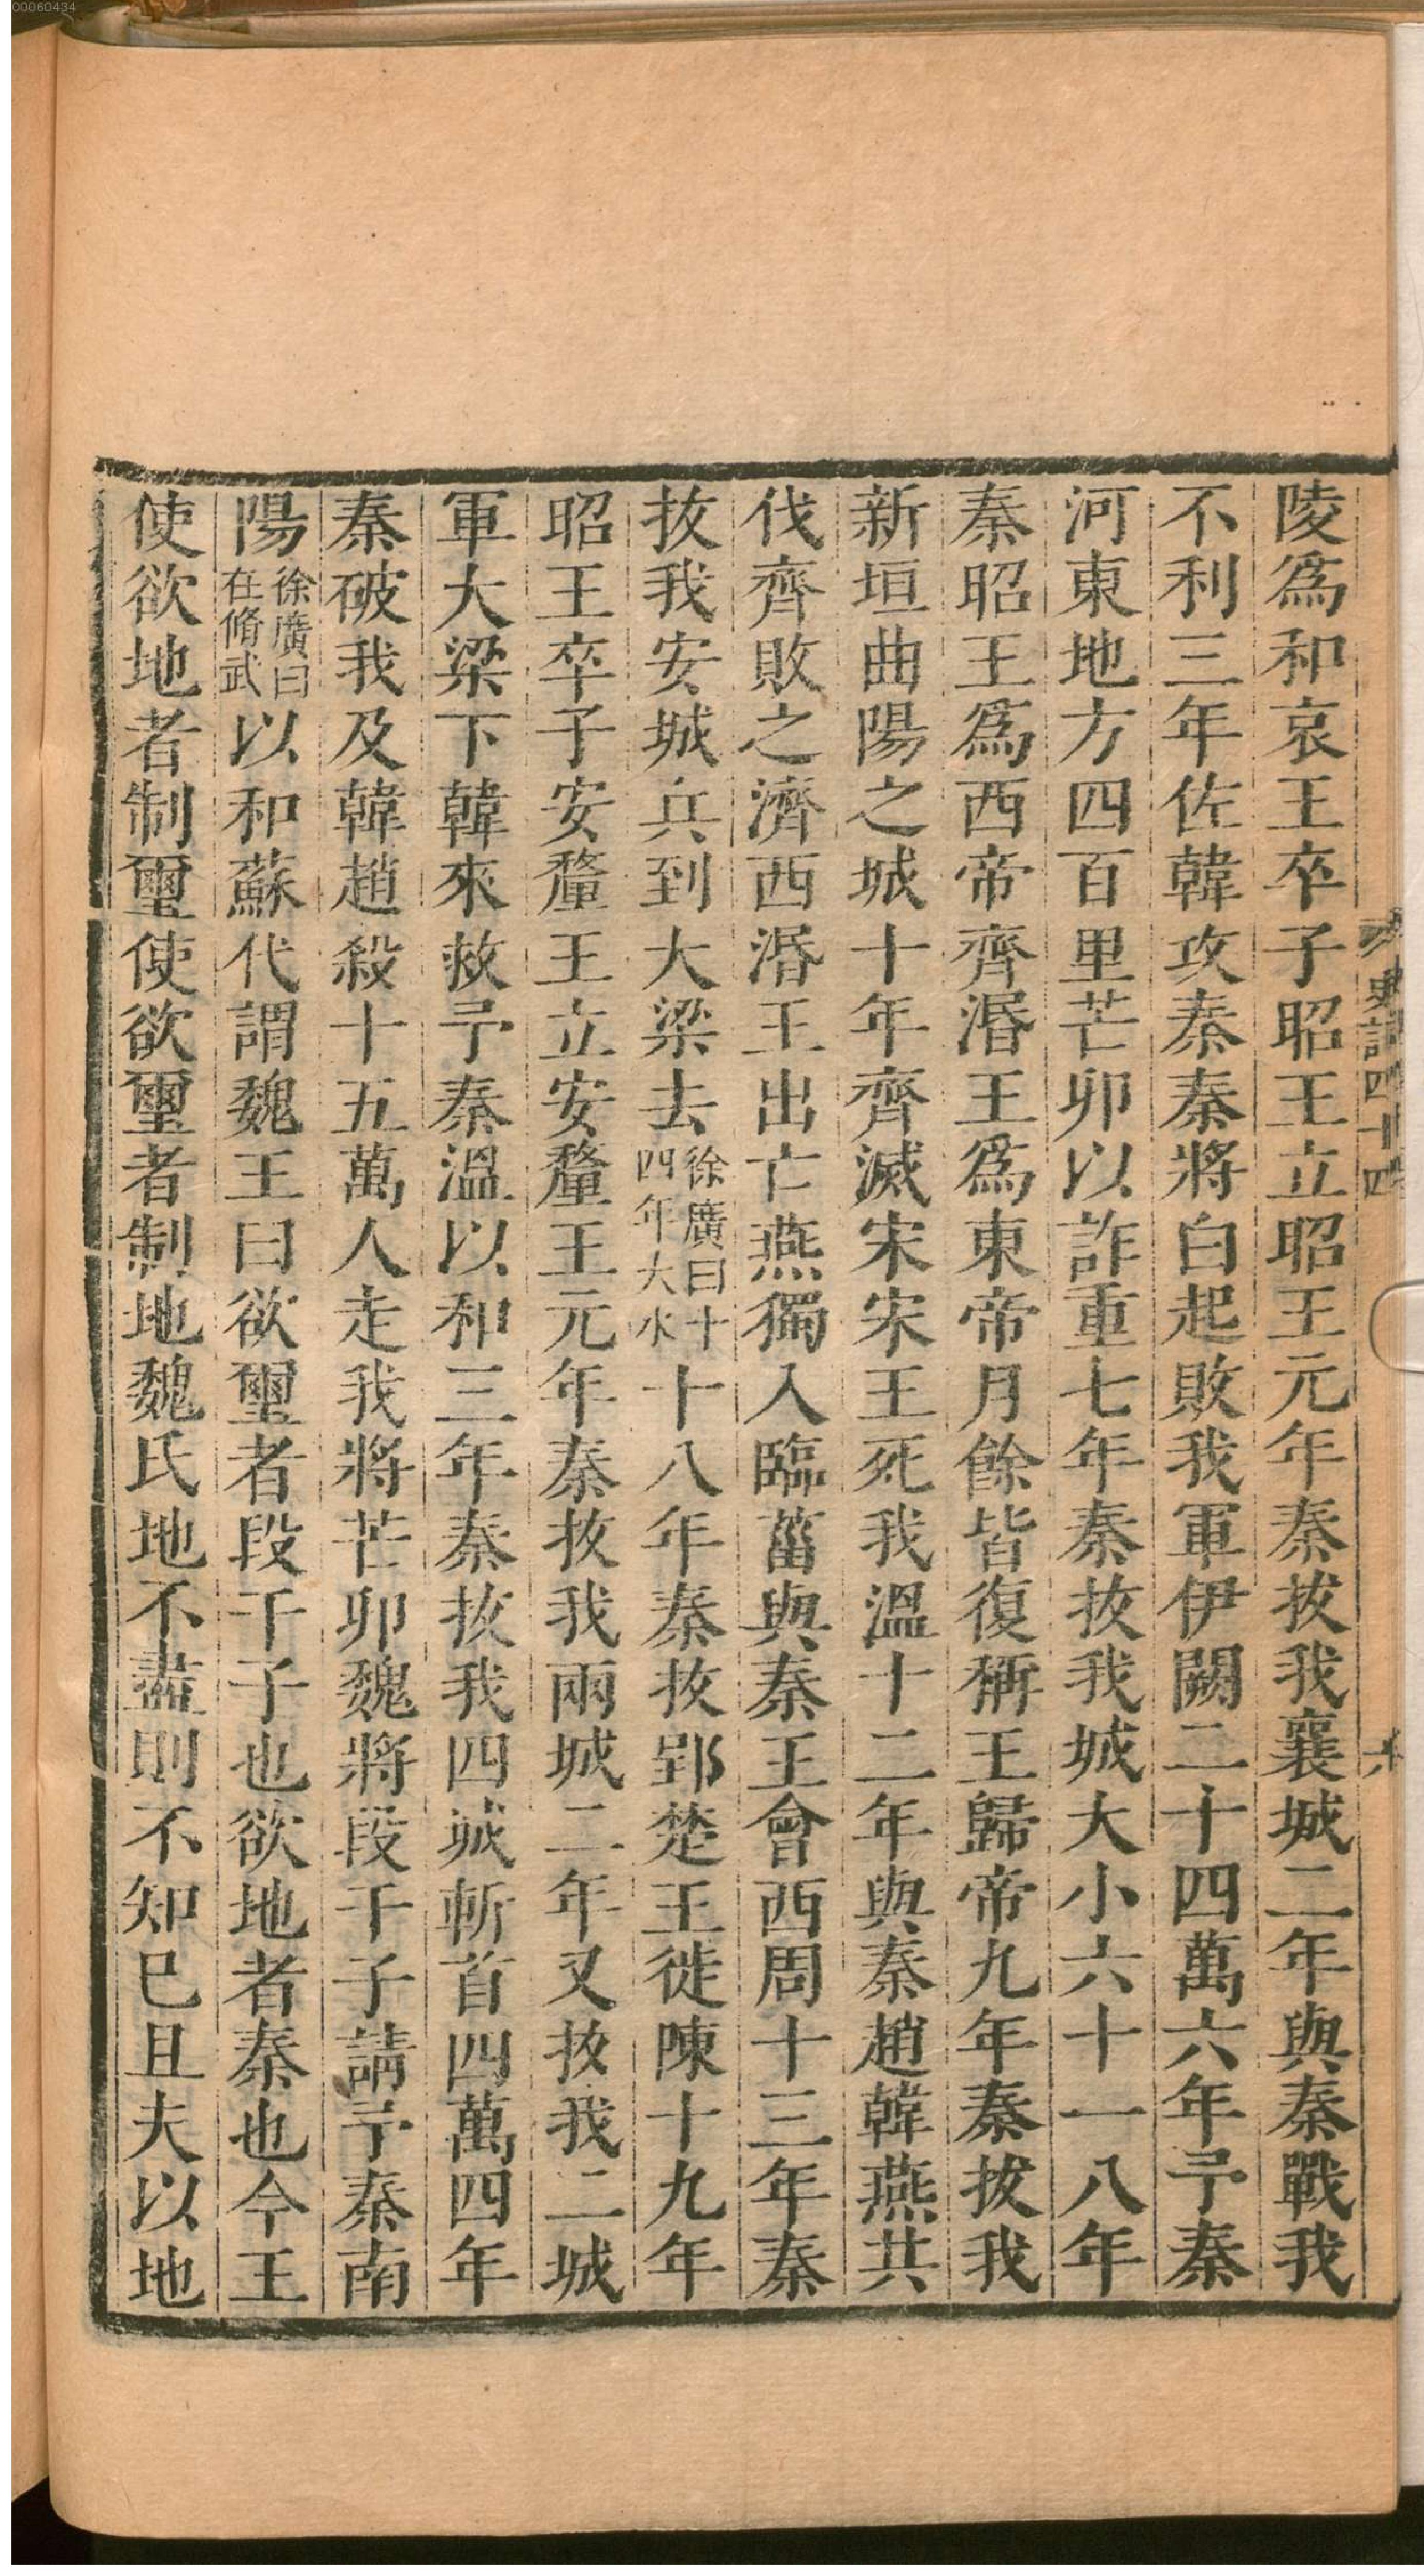 00060434
史記四十四
六
陵爲和哀王卒子昭王立昭王元年秦拔我襄城二年與秦戰我
不利三年佐韓攻秦秦將白起敗我軍伊闕二十四萬六年予秦
河東地方四百里芒卯以詐重七年秦拔我城大小六十一八年
秦昭王爲西帝齊湣王爲東帝月餘皆復稱王歸帝九年秦拔我
新垣曲陽之城十年齊滅宋宋王死我溫十二年與秦趙韓燕共
伐齊敗之濟西湣王出亡燕獨入臨菑與秦王會西周十三年秦
拔我安城兵到大梁去徐廣曰十四年大水十八年秦拔郢楚王徙陳十九年
昭王卒子安釐王立安釐王元年秦拔我兩城二年又拔我二城
軍大梁下韓來救予秦溫以和三年秦拔我四城斬首四萬四年
秦破我及韓趙殺十五萬人走我將芒卯魏將段干子請予秦南
陽徐廣曰在脩武以和蘇代謂魏王曰欲璽者段干子也欲地者秦也今王
使欲地者制璽使欲璽者制地魏氏地不盡則不知已且夫以地